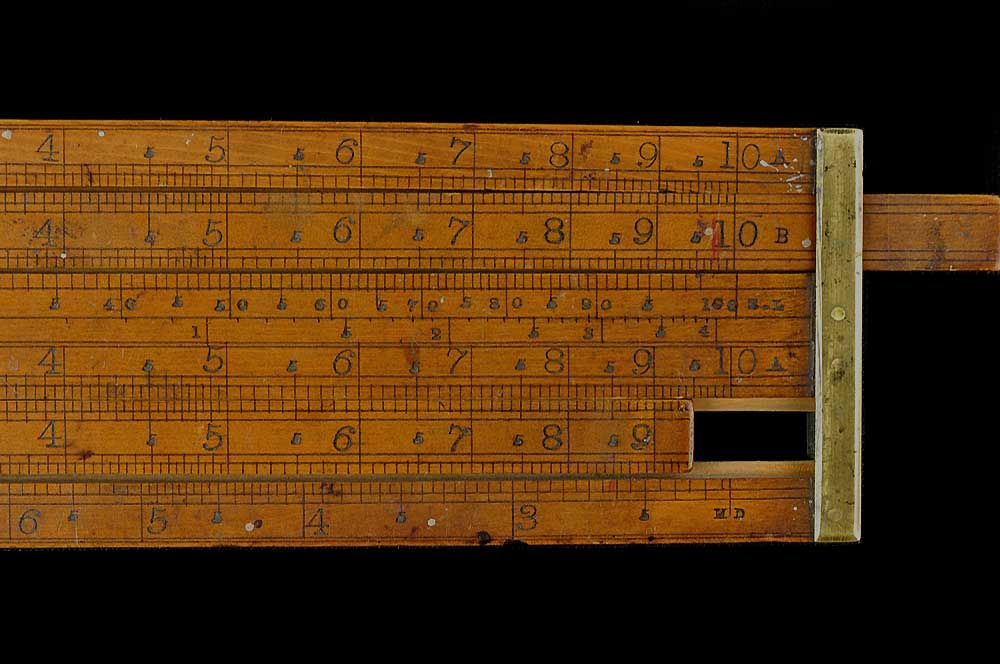 4 5 5 5 6 5 7 5 8 5 9 5 10 A
4 5 5 5 6 5 7 5 8 5 9 5 10 B
5 40 5 50 5 60 5 70 5 80 5 90 5 100 S.L
1 5 2 5 3 5 4
4 5 5 5 6 5 7 5 8 5 9 5 10 A
4 5 5 5 6 5 7 5 8 5 9
6 5 5 5 4 5 3 5 M D